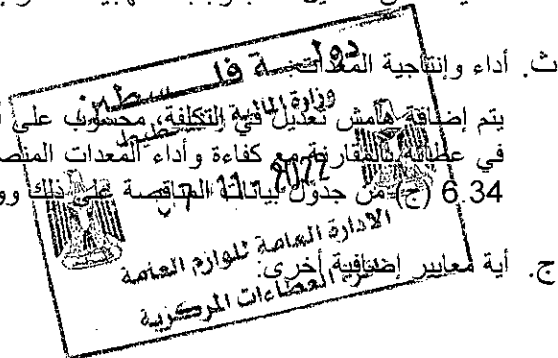 ث. أداء وإنتاجية المعدات:
يتم إضافة هامش تعديل في التكلفة، محسوب على
في عطائه بالمقارنة مع كفاءة وأداء المعدات
6.34 (ج) من جدول بيانات المناقصة على ذلك
ج. أية معايير إضافية أخرى:
دولة فلسطين
وزارة المالية
2022
الادارة العامة للوازم العامة
العطاءات المركزية